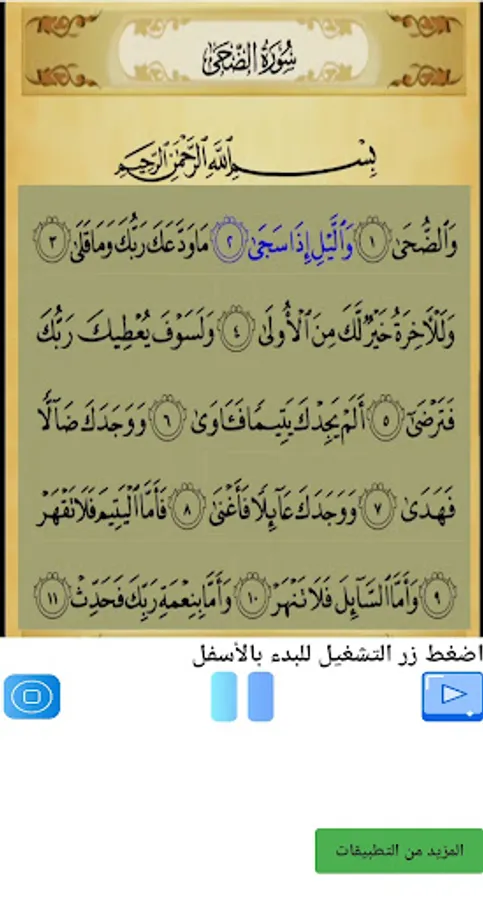 سُورَةُ الضُّحَىٰ
بِسْمِ اللَّهِ الرَّحْمَٰنِ الرَّحِيمِ
وَٱلضُّحَىٰ ١ وَٱلَّيْلِ إِذَا سَجَىٰ ٢ مَا وَدَّعَكَ رَبُّكَ وَمَا قَلَىٰ ٣
وَلَلْأَخِرَةُ خَيْرٌ لَّكَ مِنَ ٱلْأُولَىٰ ٤ وَلَسَوْفَ يُعْطِيكَ رَبُّكَ
فَتَرْضَىٰٓ ٥ أَلَمْ يَجِدْكَ يَتِيمًا فَـَٔاوَىٰ ٦ وَوَجَدَكَ ضَآلًّا
فَهَدَىٰ ٧ وَوَجَدَكَ عَآئِلًا فَأَغْنَىٰ ٨ فَأَمَّا ٱلْيَتِيمَ فَلَا تَقْهَرْ
٩ وَأَمَّا ٱلسَّآئِلَ فَلَا تَنْهَرْ ١٠ وَأَمَّا بِنِعْمَةِ رَبِّكَ فَحَدِّثْ ١١
اضغط زر التشغيل للبدء بالأسفل
المزيد من التطبيقات